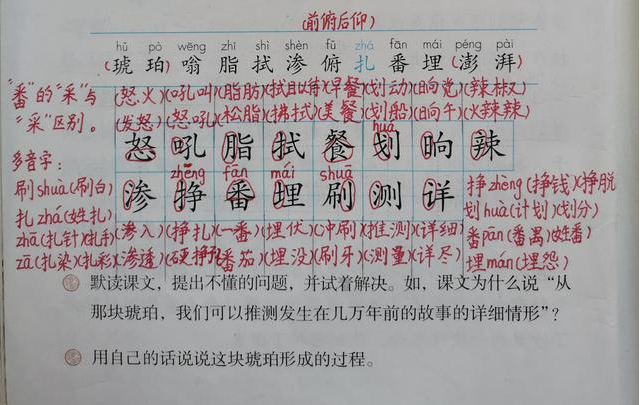 (前俯后仰)
hǔ pò wēng zhī shì shèn fǔ zhá fān mái péng pài
(琥 珀)嗡 脂 拭 渗 俯 扎 番 埋(澎 湃)
"番"的"采"与(怒火)(吼叫)(脂肪)(拭目以待)(早餐)(划动)(晌觉)(辣椒)
"采"区别。(发怒)(怒吼)(松脂)(拂拭)(美餐)(划船)(晌午)(火辣辣)
huá
怒 吼 脂 拭 餐 划 晌 辣
多音字:
zhēng fān mái shuā
渗 挣 番 埋 刷 测 详
刷shuà(刷白)
扎zhá(姓扎)
zhā(扎针)(扎手)(渗入)(挣扎)(一番)(埋伏)(冲刷)(推测)(详细)
zā(扎染)(扎彩)(渗透)(硬挣)(番茄)(埋没)(刷牙)(测量)(详尽)
挣zhèng(挣钱)(挣脱)
划huà(计划)(划分)
番pān(番禺)(姓番)
埋mán(埋怨)
默读课文,提出不懂的问题,并试着解决。如,课文为什么说"从
那块琥珀,我们可以推测发生在几万年前的故事的详细情形"?
用自己的话说说这块琥珀形成的过程。